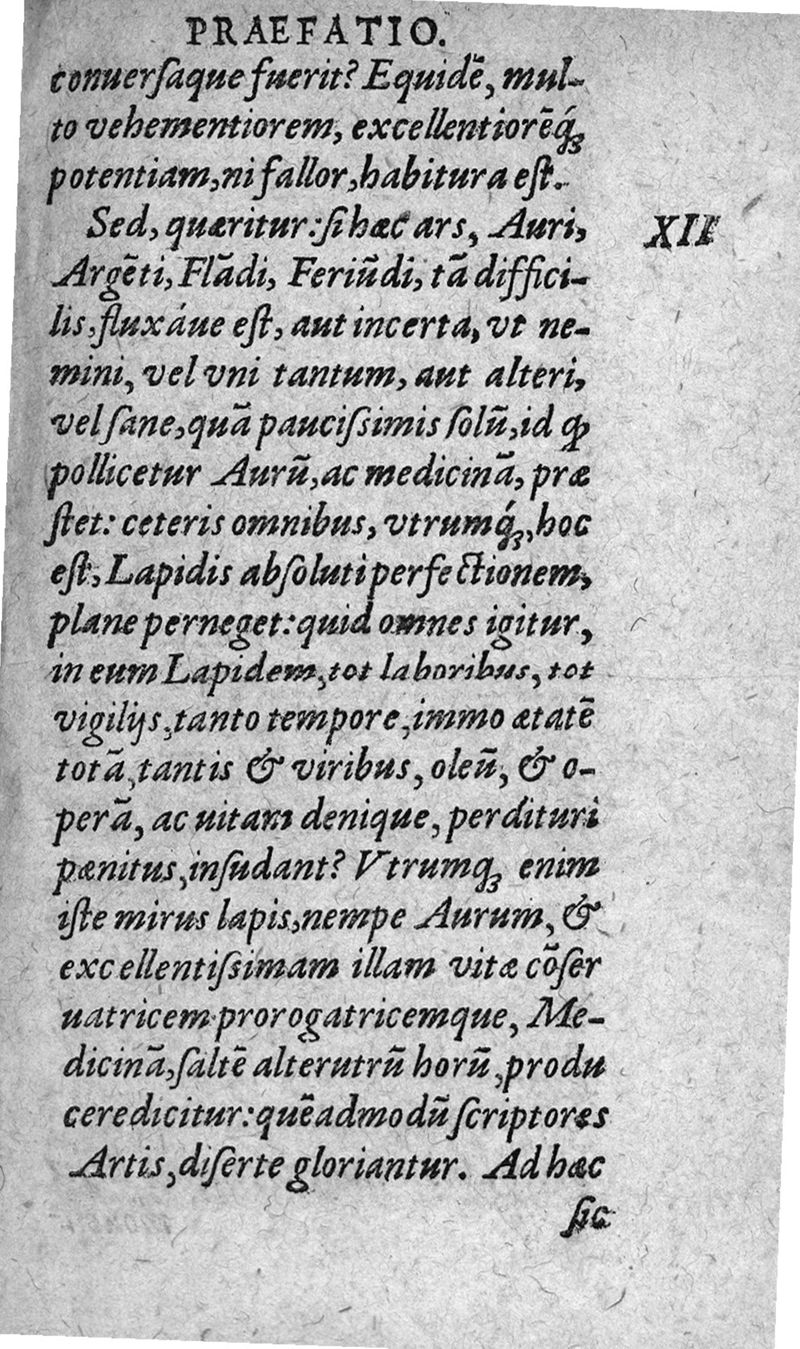 PRAEFATIO.
conuerſaque fuerit? Equidē, mul-
to vehementiorem, excellentiorēq́ꝫ
potentiam, ni fallor, habitura eſt.
Sed, quæritur: ſi hæc ars, Auri,
XII
Argēti, Flādi, Feriūdi, tā diffici-
lis, fluxáue eſt, aut incerta, vt ne-
mini, vel vni tantum, aut alteri,
vel ſane, quā pauciſsimis ſolū, id ꝙ
pollicetur Aurū, ac medicinā, præ
ſtet: ceteris omnibus, vtrumq́ꝫ, hoc
eſt, Lapidis abſoluti perfectionem,
plane perneget: quid omnes igitur,
in eum Lapidem, tot laboribus, tot
vigilijs, tanto tempore, immo ætatē
totā, tantis & viribus, oleū, & o-
perā, ac uitam denique, perdituri
pænitus, inſudant? Vtrumqꝫ enim
iſte mirus lapis, nempe Aurum, &
excellentiſsimam illam vitæ cōſer
uatricem prorogatricemque, Me-
dicinā, ſaltē alterutrū horū, produ
cere dicitur: quēadmodū ſcriptores
Artis, diſerte gloriantur. Ad hæc
ſic